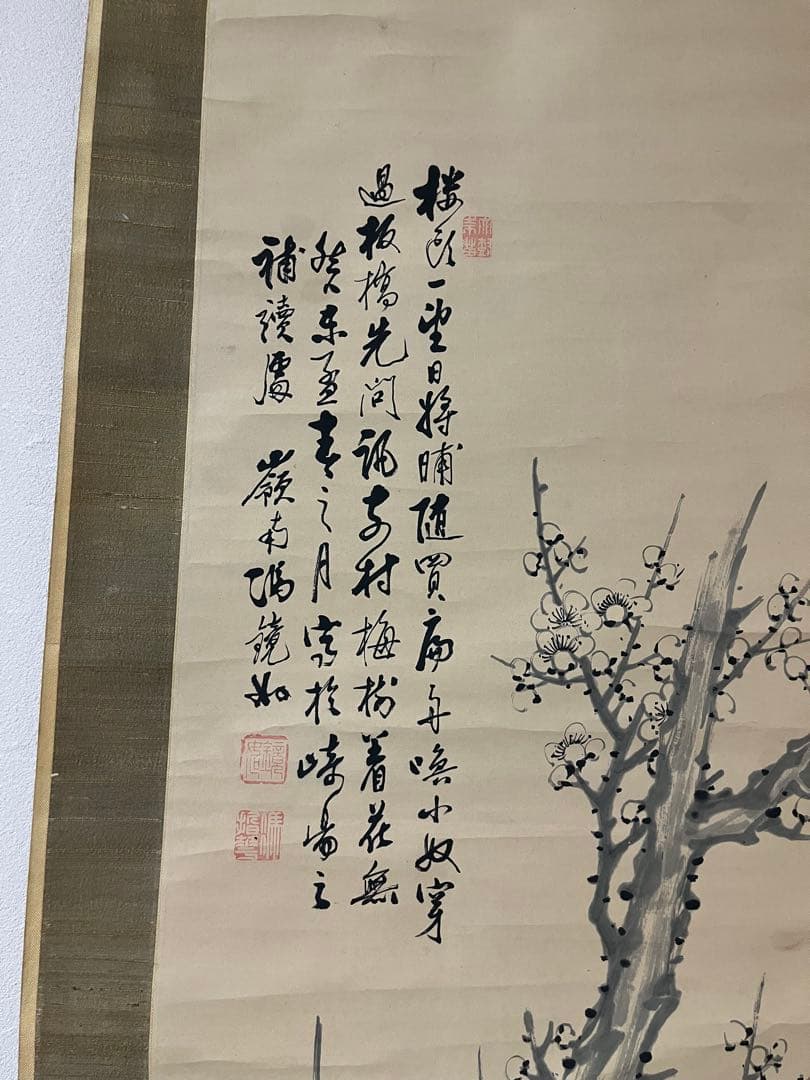 楼頭一望日将晡随買扁舟喚小奴穿
過板橋先問訊前村梅樹着花無
癸未孟春之月寫於崎陽之
補讀廬 嶺南馮鏡如